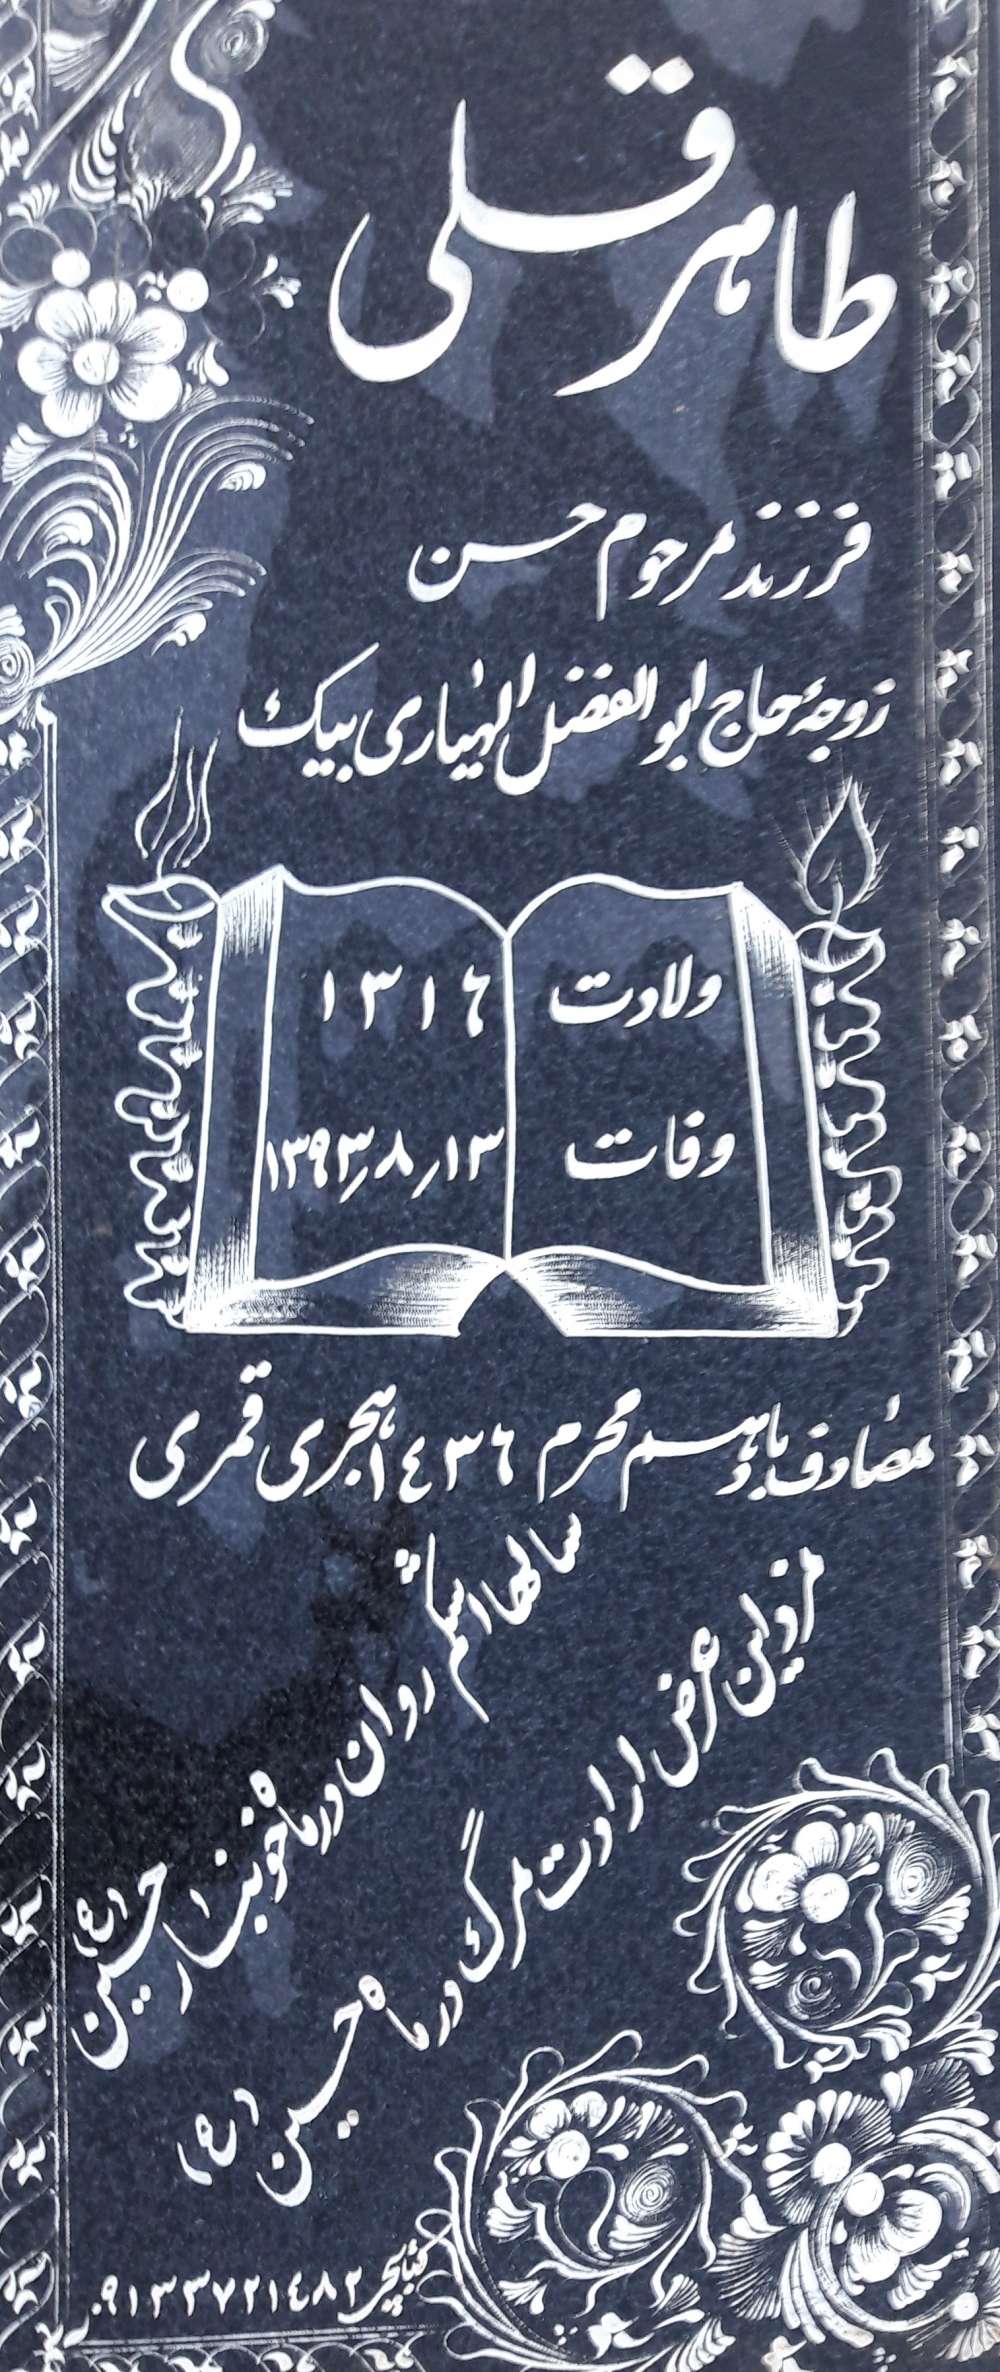 طاهر قلی
فرزند مرحوم حسن
زوجهٔ حاج ابوالفضل الهیاری بیک
ولادت ۱۳۱۶
وفات ۱۳٫۸٫۱۳۹۳
مصادف با دهم محرم ۱۴۳۶ هجری قمری
سالها اشکم روان در ماه خونبار حسین (ع)
مزد این عرض ارادت مرگ در ماه حسین (ع)
۰۹۱۳۳۷۲۱۴۸۲